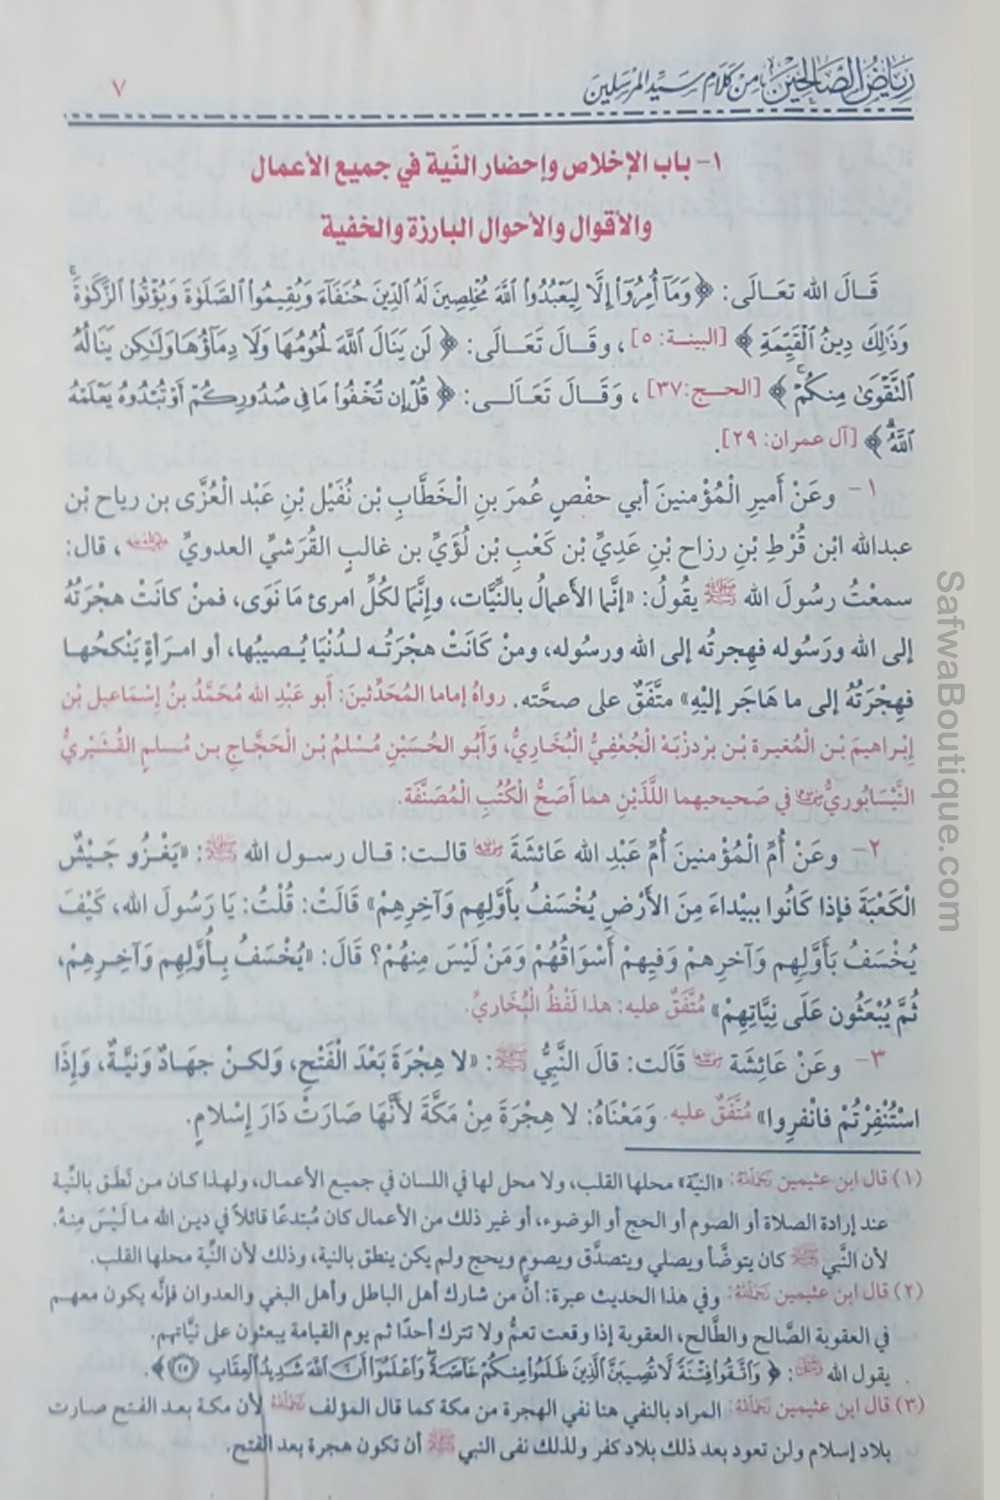 رياض الصالحين من كلام سيد المرسلين
٧
١- باب الإخلاص وإحضار النَية في جميع الأعمال
والأقوال والأحوال البارزة والخفية
قَـالَ الله تعَـالَى: ﴿وَمَآ أُمِرُوٓا۟ إِلَّا لِيَعْبُدُوا۟ ٱللَّهَ مُخْلِصِينَ لَهُ ٱلدِّينَ حُنَفَآءَ وَيُقِيمُوا۟ ٱلصَّلَوٰةَ وَيُؤْتُوا۟ ٱلزَّكَوٰةَۚ
وَذَٰلِكَ دِينُ ٱلْقَيِّمَةِ﴾ [البينـة: ٥]، وقَــالَ تَعَــالَى: ﴿لَن يَنَالَ ٱللَّهَ لُحُومُهَا وَلَا دِمَآؤُهَا وَلَـٰكِن يَنَالُهُ
ٱلتَّقْوَىٰ مِنكُمْۚ﴾ [الحـج: ٣٧]، وَقَــالَ تَعَـالَــى: ﴿قُلْ إِن تُخْفُوا۟ مَا فِى صُدُورِكُمْ أَوْ تُبْدُوهُ يَعْلَمْهُ
ٱللَّهُۗ﴾ [آل عمران: ٢٩].
١- وعَنْ أَميرِ الْمُؤْمنينَ أبي حفْصٍ عُمرَ بنِ الْخَطَّابِ بْن نُفَيْل بْنِ عَبْد الْعُزَّى بن رياح بْن
عبدالله ابْن قُرْطِ بْنِ رزاح بْنِ عَدِيِّ بْن كَعْبِ بْن لُؤَيِّ بن غالبٍ القُرَشيِّ العدويِّ، قال:
سمعْتُ رسُولَ الله ﷺ يقُولُ: «إنَّما الأَعمالُ بالنِّيَّات، وإِنَّمَا لكُلِّ امرئ مَا نَوَى، فمنْ كانَتْ هجْرَتُهُ
إلى الله ورَسُوله فهِجرتُه إلى الله ورسُوله، ومنْ كَانَتْ هجْرَتُـه لـدُنْيَا يُـصيبُها، أو امرَأةٍ يَنْكحُهـا
فهِجْرَتُهُ إلى ما هَاجَر إليْهِ» متَّفَقٌ على صحَّته. رواهُ إماما المُحَدِّثينَ: أَبو عَبْدِ الله مُحَمَّدُ بنُ إسْمَاعيل بْن
إبْراهيمَ بْـن الْمُغيـرة بْـن بـرْدزْبَـهْ الْجُعْفِيُّ الْبُخَارِيُّ، وَأَبُـو الحُسَيْنِ مُسْلمُ بْـن الْحَجَّاجِ بـن مُـسلمٍ القُـشَيْريُّ
النَّيْسَابُوريُّ في صَحيحيهما اللَّذَيْنِ هما أَصَحُّ الْكُتُبِ الْمُصَنَّفَة.
٢- وعَنْ أُمِّ الْمُؤْمنينَ أُمِّ عَبْدِ الله عَائشَةَ قالـت: قـال رسـول الله ﷺ: «يَغْـزُو جَيْـشٌ
الْكَعْبَةَ فإذا كَانُوا ببيْداءَ مِنَ الأَرْضِ يُخْسَفُ بأَوَّلِهِم وَآخِرِهِمْ» قَالَتْ: قُلْتُ: يَا رَسُولَ الله، كَيْفَ
يُخْسَفُ بَأَوَّلِهِم وَآخِرِهِمْ وَفِيهِمْ أَسْوَاقُهُمْ وَمَنْ لَيْسَ مِنهُمْ؟ قَالَ: «يُخْسَفُ بِـأَوَّلِهِم وَآخِـرِهِمْ،
ثُمَّ يُبْعَثُون عَلَى نِيَّاتِهِمْ» مُتَّفَقٌ عليه: هذا لَفْظُ الْبُخَاريِّ.
٣- وعَنْ عَائِشَة قَالَت: قالَ النَّبيُّ ﷺ: «لا هِجْرَةَ بَعْدَ الْفَتْحِ، وَلكنْ جهَادٌ وَنيَّةٌ، وَإِذَا
اسْتُنْفِرْتُمْ فانْفِروا» مُتَّفَقٌ عليه. وَمَعْنَاهُ: لا هِجْرَةَ مِنْ مَكَّةَ لأَنَّهَا صَارَتْ دَارَ إسْلامٍ.
(١) قال ابن عثيمين: «النيّة» محلها القلب، ولا محل لها في اللسان في جميع الأعمال، ولهذا كان من نَطَق بالنِّية
عند إرادة الصلاة أو الصوم أو الحج أو الوضوء، أو غير ذلك من الأعمال كان مُبتدعًا قائلاً في ديـن الله مـا لَيْـسَ مِنهُ.
لأن النَّبي ﷺ كان يتوضَّأ ويصلي ويتصدَّق ويصوم ويحج ولم يكن ينطق بالنية، وذلك لأن النِّية محلها القلب.
(٢) قال ابن عثيمين: وفي هذا الحديث عبرة: أنَّ من شارك أهل الباطل وأهل البغي والعدوان فإنَّه يكون معهـم
في العقوبة الصَّالح والطَّالح، العقوبة إذا وقعت تعمُّ ولا تترك أحدًا ثم يوم القيامة يبعثون على نيَّاتهم.
يقول الله: ﴿وَٱتَّقُوا۟ فِتْنَةً لَّا تُصِيبَنَّ ٱلَّذِينَ ظَلَمُوا۟ مِنكُمْ خَآصَّةً وَٱعْلَمُوٓا۟ أَنَّ ٱللَّهَ شَدِيدُ ٱلْعِقَابِ (٢٥)﴾.
(٣) قال ابن عثيمين: المراد بالنفي هنا نفي الهجرة من مكة كما قال المؤلف لأن مكة بعـد الفـتح صـارت
بلاد إسلام ولن تعود بعد ذلك بلاد كفر ولذلك نفى النبي ﷺ أن تكون هجرة بعد الفتح.
SafwaBoutique.com